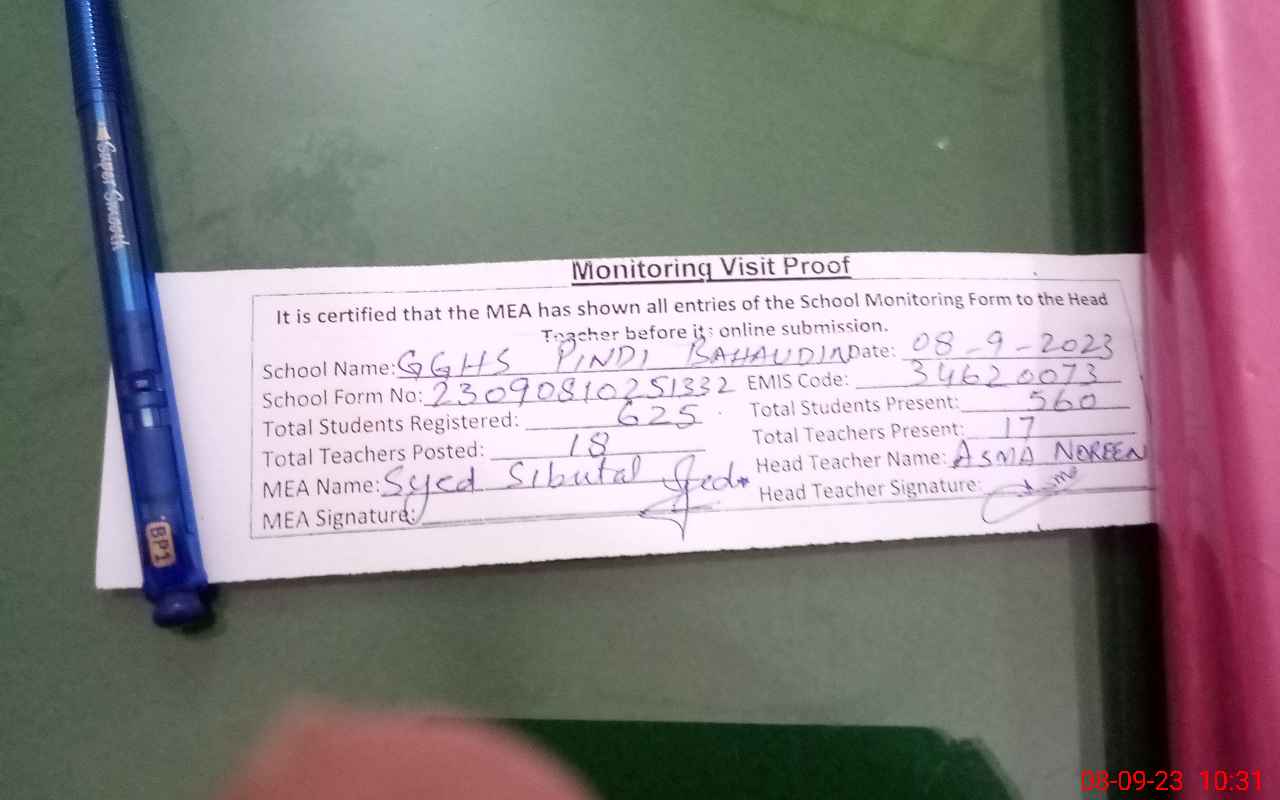 Super Smooth
BP1
Monitoring Visit Proof
It is certified that the MEA has shown all entries of the School Monitoring Form to the Head
Teacher before its online submission.
School Name: GGHS PINDI BAHAUDIN Date: 08-9-2023
School Form No: 23090810251332 EMIS Code: 34620073
Total Students Registered: 625 Total Students Present: 560
Total Teachers Posted: 18 Total Teachers Present: 17
MEA Name: Syed Sibutal Head Teacher Name: ASMA NOREEN
MEA Signature: Head Teacher Signature:
08-09-23 10:31